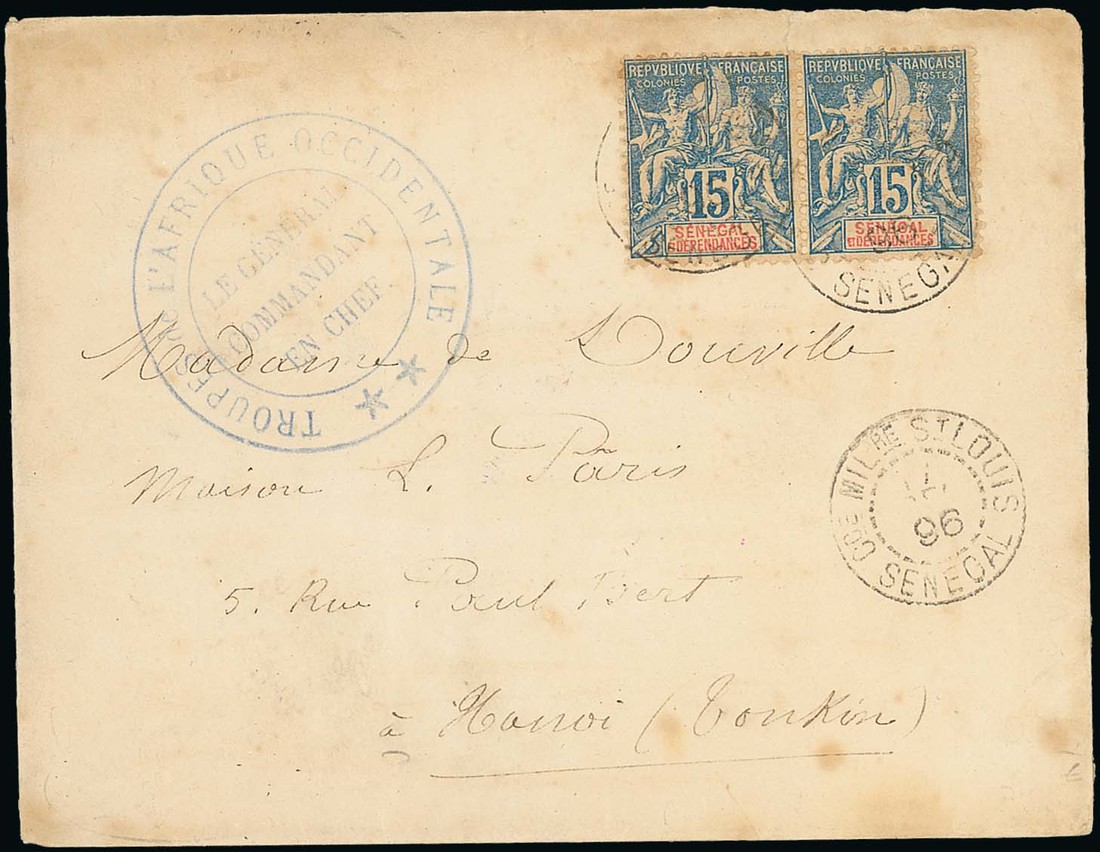 REPVBLIQVE FRANÇAISE
COLONIES POSTES
15
SÉNÉGAL
ET DÉPENDANCES
REPVBLIQVE FRANÇAISE
COLONIES POSTES
15
SÉNÉGAL
ET DÉPENDANCES
SENEGAL
TROUPES DE L'AFRIQUE OCCIDENTALE
LE GÉNÉRAL
COMMANDANT
EN CHEF
Madame de Douville
Maison L. Pâris
5. Rue Paul Bert
à Hanoi (Tonkin)
Cᴅᴇ MILᴿᴱ Sᵀ LOUIS
96
SENEGAL